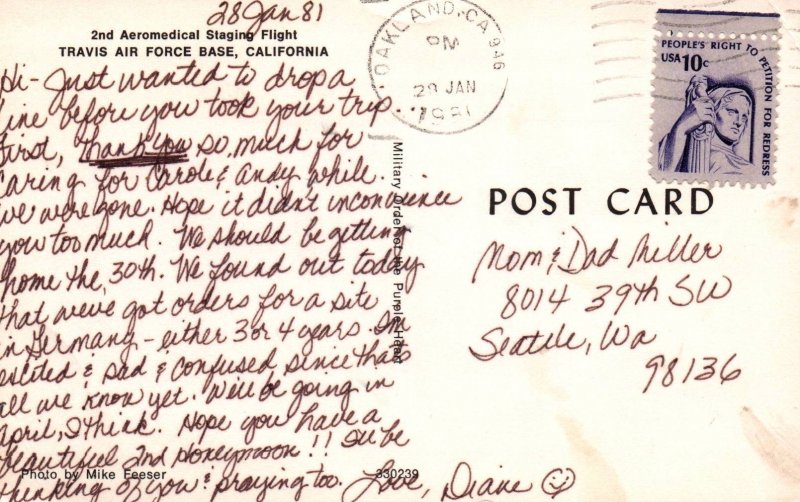 28 Jan 81
2nd Aeromedical Staging Flight
TRAVIS AIR FORCE BASE, CALIFORNIA
Hi - Just wanted to drop a
line before you took your trip...
First, Thank You so much for
caring for Carole & Andy while
we were gone. Hope it didn't inconvience
you too much. We should be getting
home the 30th. We found out today
that we've got orders for a site
in Germany - either 3 or 4 years. I'm
excited & sad & confused, since that's
all we know yet. We'll be going in
April, I think. Hope you have a
beautiful 2nd Honeymoon!! I'll be
thinking of you & praying too. Love, Diane
Photo by Mike Feeser
330239
Military Order of the Purple Heart
OAKLAND, CA 946
PM
29 JAN
1981
PEOPLE'S RIGHT TO PETITION FOR REDRESS
USA 10c
POST CARD
Mom & Dad Miller
8014 39th SW
Seattle, Wa
98136